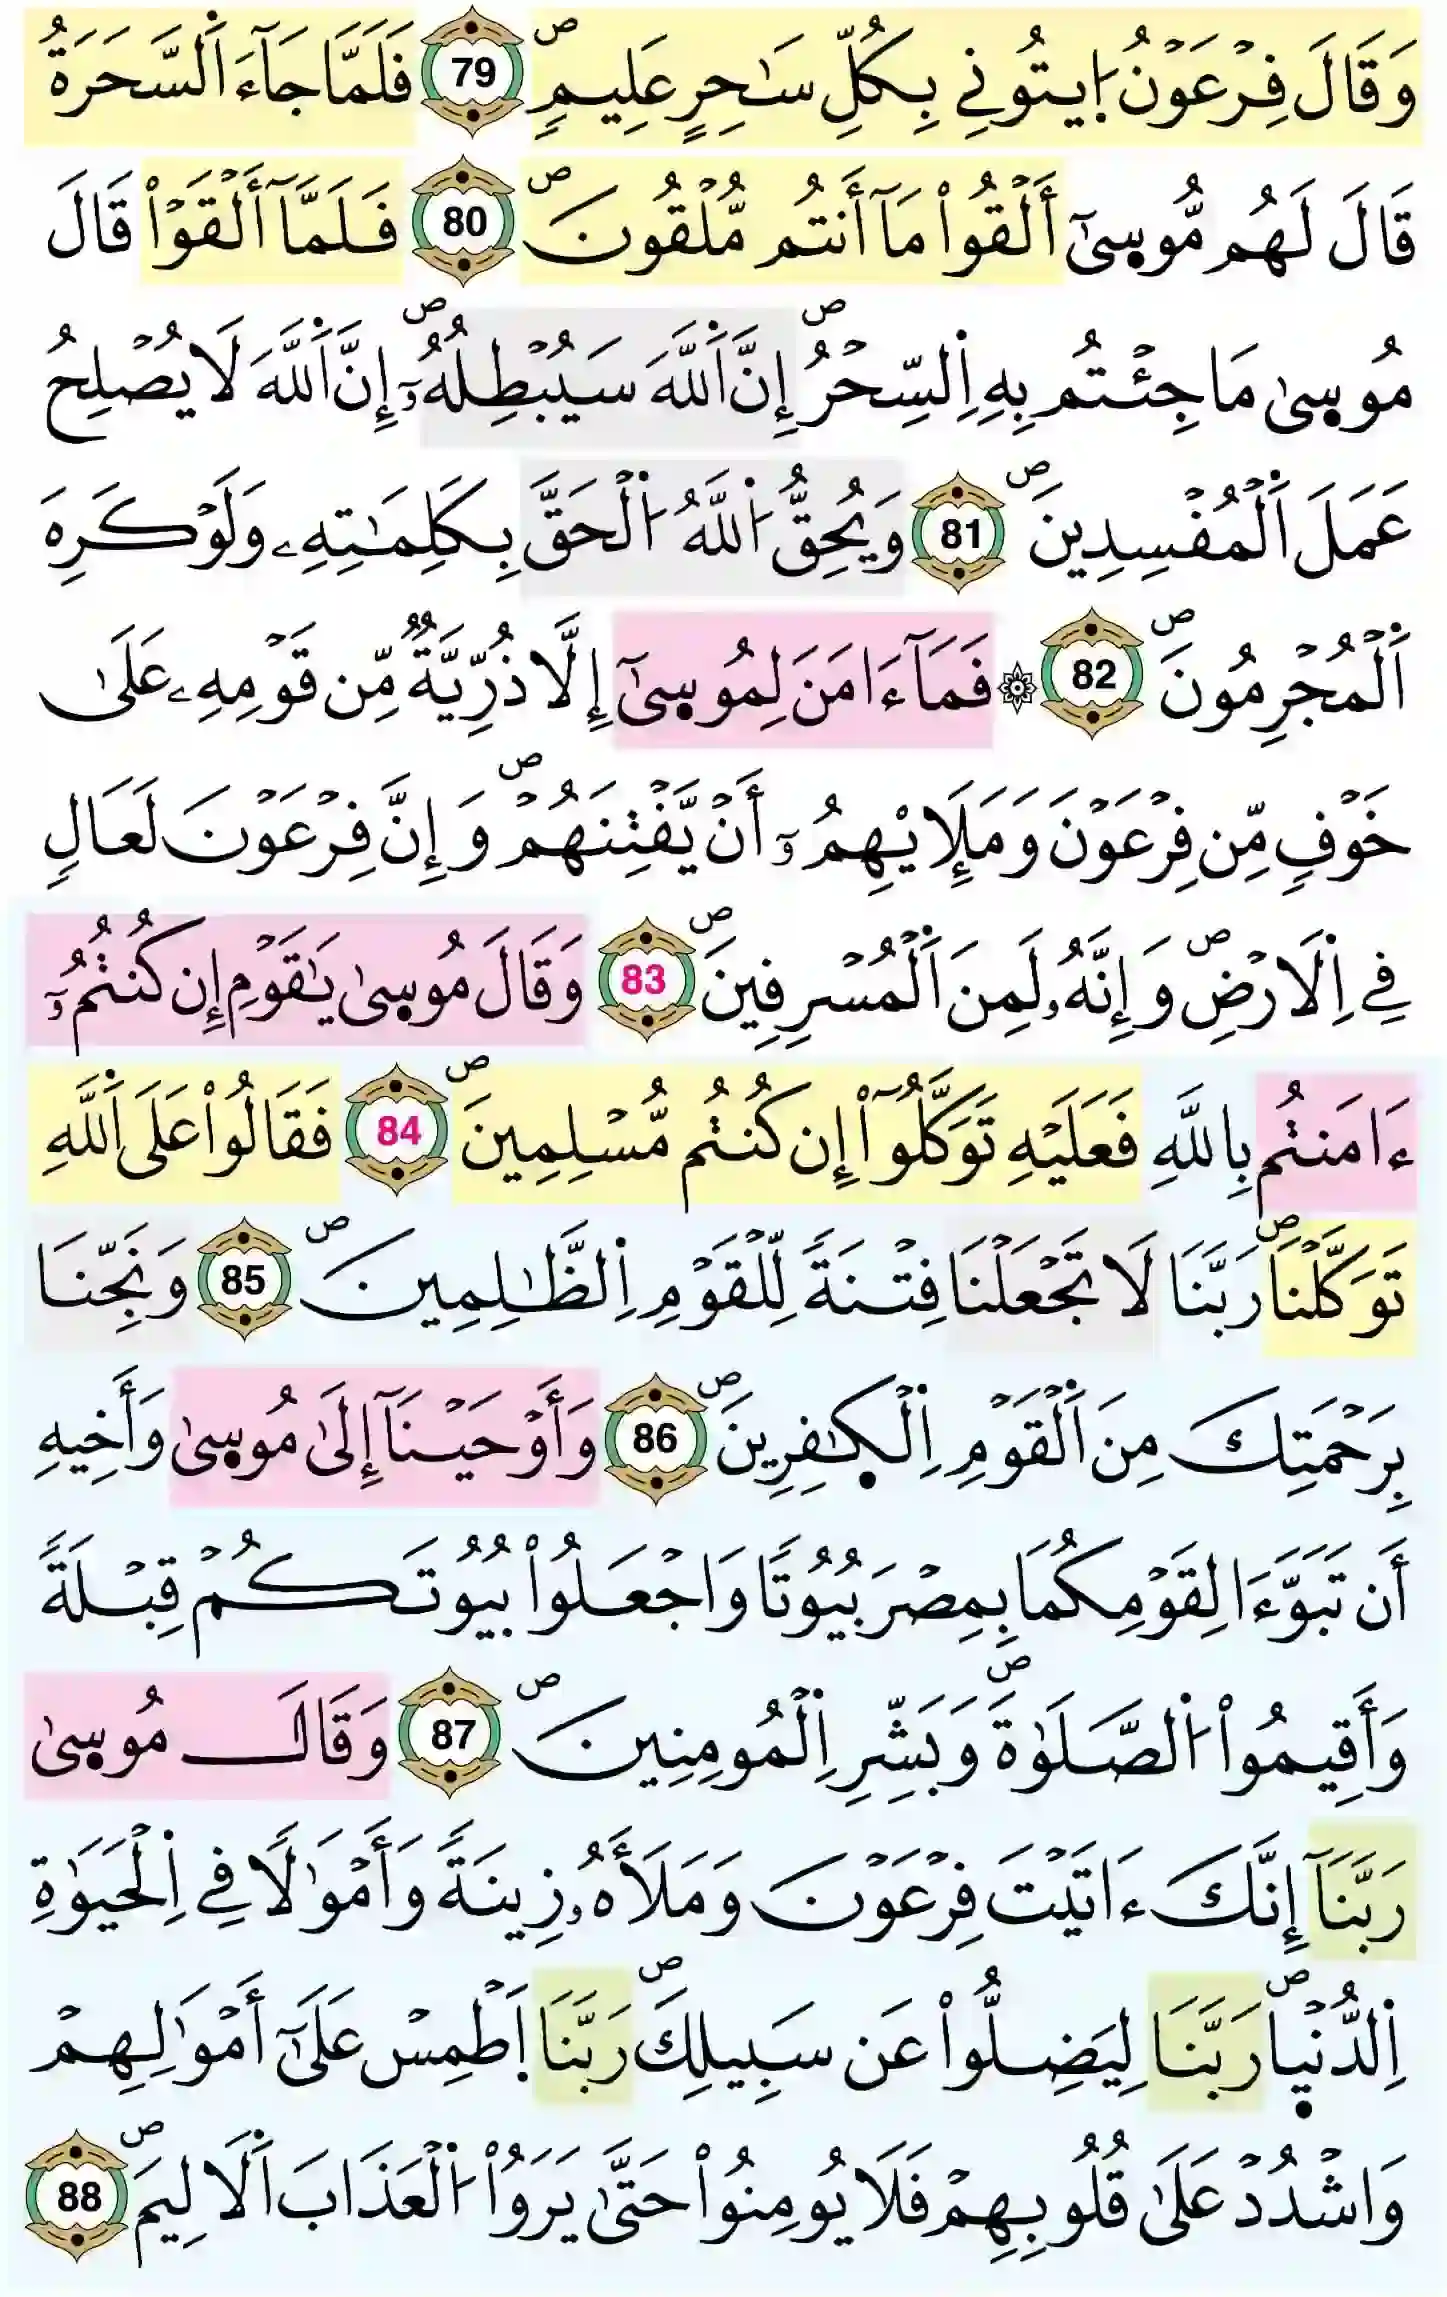 وَقَالَ فِرْعَوْنُ اُ۪يتُونِے بِكُلِّ سَٰحِرٍ عَلِيمٍۖ 79 فَلَمَّا جَآءَ اَ۬لسَّحَرَةُ
قَالَ لَهُم مُّوس۪ىٰٓ أَلْقُواْ مَآ أَنتُم مُّلْقُونَۖ 80 فَلَمَّآ أَلْقَوْاْ قَالَ
مُوس۪ىٰ مَا جِئْتُم بِهِ اِ۬لسِّحْرُۖ إِنَّ اَ۬للَّهَ سَيُبْطِلُهُۥٓۖ إِنَّ اَ۬للَّهَ لَا يُصْلِحُ
عَمَلَ اَ۬لْمُفْسِدِينَۖ 81 وَيُحِقُّ اُ۬للَّهُ اُ۬لْحَقَّ بِكَلِمَٰتِهِۦ وَلَوْ كَرِهَ
اَ۬لْمُجْرِمُونَۖ 82 ۞ فَمَآ ءَامَنَ لِمُوس۪ىٰٓ إِلَّا ذُرِّيَّةٌ مِّن قَوْمِهِۦ عَلَىٰ
خَوْفٍ مِّن فِرْعَوْنَ وَمَلَإِيْهِمُۥٓ أَنْ يَّفْتِنَهُمْۖ وَإِنَّ فِرْعَوْنَ لَعَالٍ
فِے اِ۬لَارْضِۖ وَإِنَّهُۥ لَمِنَ اَ۬لْمُسْرِفِينَۖ 83 وَقَالَ مُوس۪ىٰ يَٰقَوْمِ إِن كُنتُمُۥٓ
ءَامَنتُم بِاللَّهِ فَعَلَيْهِ تَوَكَّلُوٓاْ إِن كُنتُم مُّسْلِمِينَۖ 84 فَقَالُواْ عَلَى اَ۬للَّهِ
تَوَكَّلْنَاۖ رَبَّنَا لَا تَجْعَلْنَا فِتْنَةً لِّلْقَوْمِ اِ۬لظَّٰلِمِينَۖ 85 وَنَجِّنَا
بِرَحْمَتِكَ مِنَ اَ۬لْقَوْمِ اِ۬لْكٰ۪فِرِينَۖ 86 وَأَوْحَيْنَآ إِلَىٰ مُوس۪ىٰ وَأَخِيهِ
أَن تَبَوَّءَا لِقَوْمِكُمَا بِمِصْرَ بُيُوتًا وَاجْعَلُواْ بُيُوتَكُمْ قِبْلَةً
وَأَقِيمُواْ اُ۬لصَّلَوٰةَۖ وَبَشِّرِ اِ۬لْمُومِنِينَۖ 87 وَقَالَ مُوس۪ىٰ
رَبَّنَآ إِنَّكَ ءَاتَيْتَ فِرْعَوْنَ وَمَلَأَهُۥ زِينَةً وَأَمْوَٰلًا فِے اِ۬لْحَيَوٰةِ
اِ۬لدُّنْي۪اۖ رَبَّنَا لِيَضِلُّواْ عَن سَبِيلِكَۖ رَبَّنَا اَ۪طْمِسْ عَلَىٰٓ أَمْوَٰلِهِمْ
وَاشْدُدْ عَلَىٰ قُلُوبِهِمْ فَلَا يُومِنُواْ حَتَّىٰ يَرَوُاْ اُ۬لْعَذَابَ اَ۬لَالِيمَۖ 88